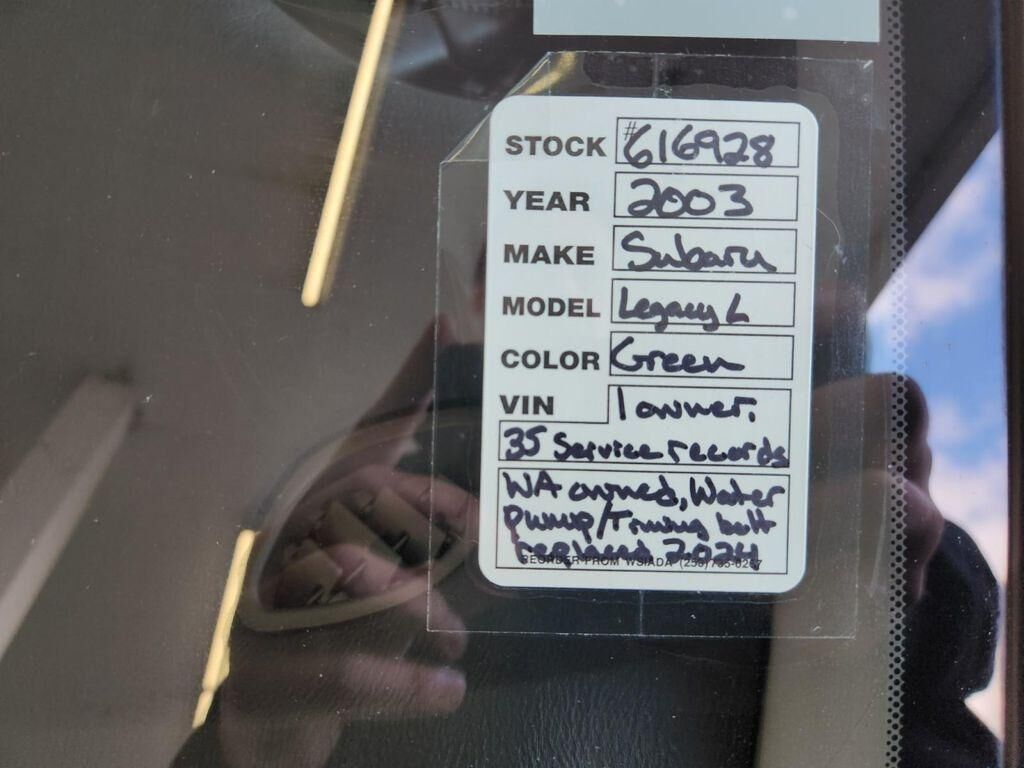 STOCK #616928
YEAR 2003
MAKE Subaru
MODEL Legacy L
COLOR Green
VIN 1 owner.
35 Service records
WA owned, Water
pump/Timing belt
replaced 2024
REORDER FROM WSIADA (253) 735-0267